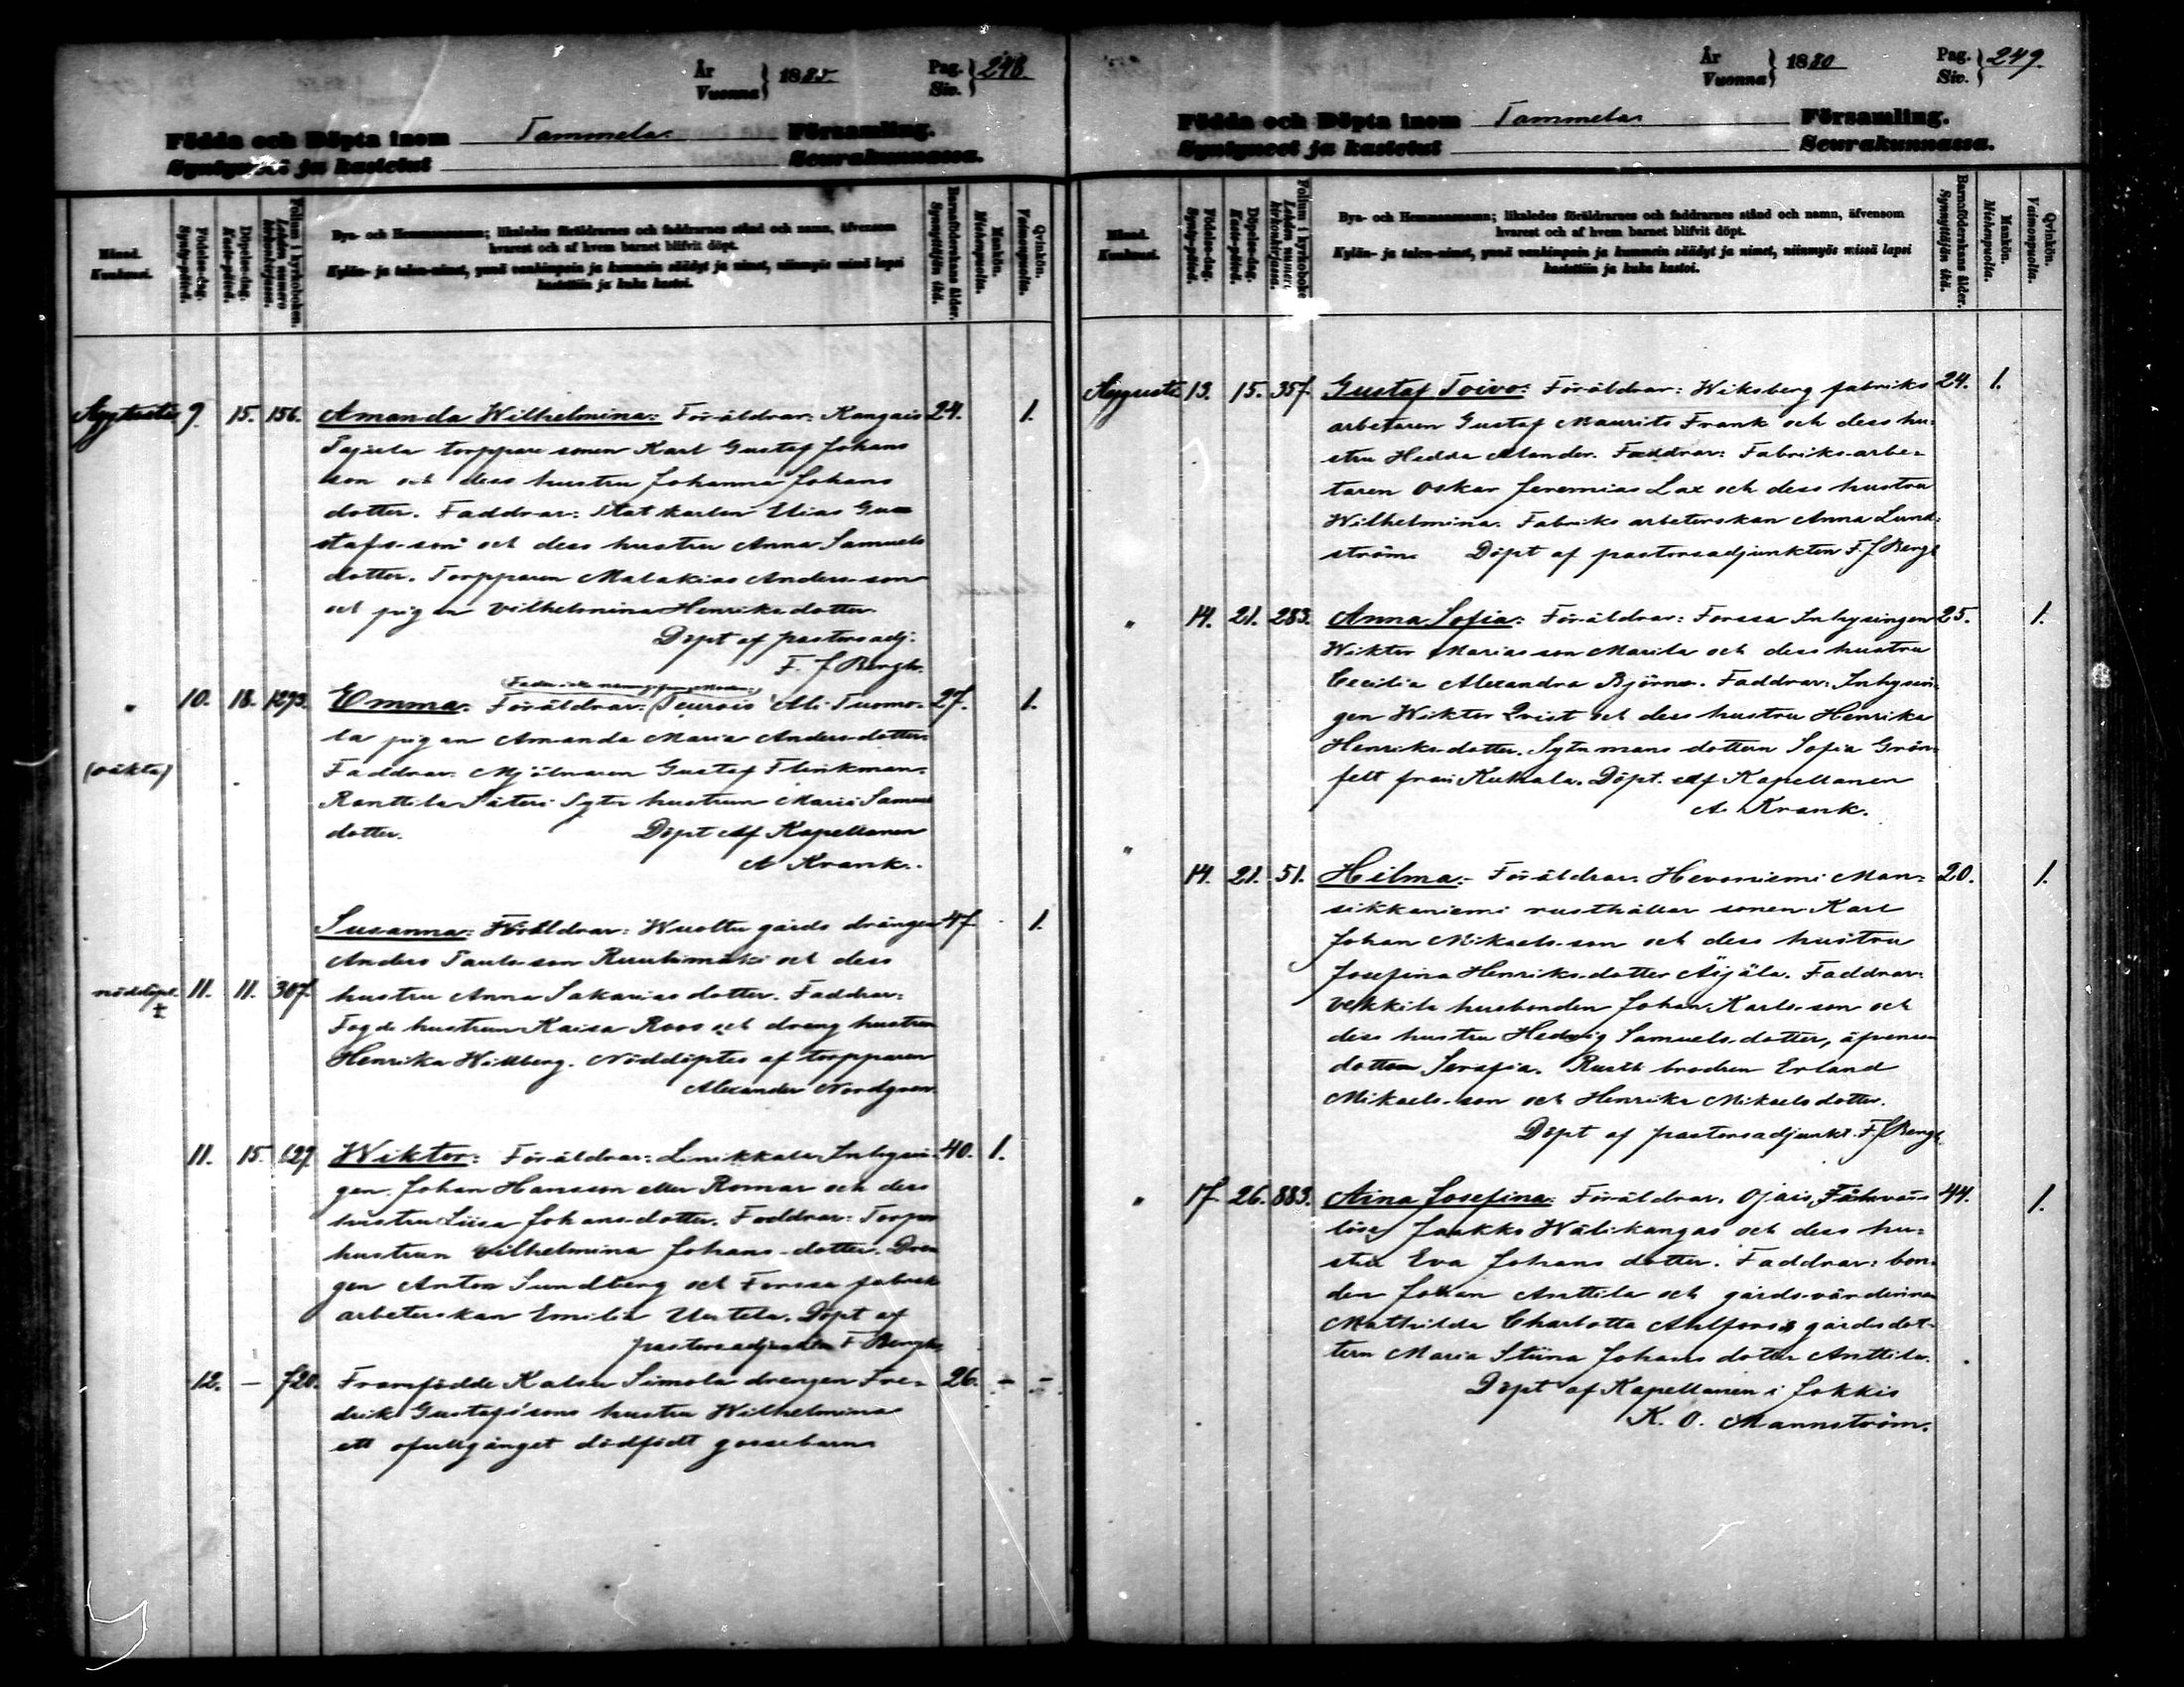 År
Vuonna } 1880.
Pag.
Siv. } 248.
Födda och Döpta inom Tammela Församling.
Syntyneet ja kastetut Seurakunnassa.
Månad.
Kuukausi.
Födelse-dag.
Synty-päivä.
Döpelse-dag.
Kaste-päivä.
Folium i kyrkoboken.
Lehden numero kirkonkirjassa.
Bya- och Hemmansnamn; likaledes föräldrarnes och faddrarnes stånd och namn, äfvensom
hvarest och af hvem barnet blifvit döpt.
Kylän- ja talon-nimet, ynnä vanhimpain ja kummein säädyt ja nimet, niinmyös missä lapsi
kastettiin ja kuka kastoi.
Barnaföderskans ålder.
Synnyttäjän ikä.
Mankön.
Miehenpuolia.
Qvinkön.
Vaimonpuolia.
Augusti 9. 15. 156. Amanda Wilhelmina: Föräldrar: Kangais 24. 1.
torppare sonen Karl Gustaf Johans
son och dess hustru Johanna Johans
dotter. Faddrar: Statkarlen Elias Gus
stafs-son och dess hustru Anna Samuels
dotter. Torpparen Malakias Anders-son
och pigan Vilhelmina Henriksdotter
Döpt af pastorsadj.
F. J Bergh.
" 10. 18. 1293. Emma. Föräldrar: (Teurois Ali-Tuomo- 27. 1.
la pigan Amanda Maria Anders-dotter
(oäkta)
Faddrar: Mjölnaren Gustaf Flinkman.
Ranttila Säteri Sytn hustrun Maria Samuels
dotter. Döpt af Kapellanen
A Krank.
Susanna: Föräldrar: Wuoltu gårds drängen 47 1.
Anders Pauls-son Ruuhimäki och dess
nöddöpt. † 11. 11. 307. hustru Anna Sakarias dotter. Faddrar:
Fogde hustrun Kaisa Roos och dräng hustrun
Henrika Hillberg. Nöddöptes af torpparen
Alexander Nordgren.
11. 15. 627 Wiktor: Föräldrar: Linikkala Inhysin- 40. 1.
gen Johan Hansson eller Romar och dess
hustru Liisa Johans-dotter. Faddrar: Torpar
hustrun Vilhelmina Johans-dotter. Drän
gen Anton Sundberg och Forssa fabriks
arbeterskan Emilia Uutela. Döpt af
pastorsadjunkten F. Bergh
12. – 720. Framfödde Kalsu Simola drengen Fre- 26. – –
drik Gustafssons hustru Wilhelmina
ett ofullgånget dödfödt gossebarn
År
Vuonna } 1880
Pag.
Siv. } 249.
Födda och Döpta inom Tammela Församling.
Syntyneet ja kastetut Seurakunnassa.
Månad.
Kuukausi.
Födelse-dag.
Synty-päivä.
Döpelse-dag.
Kaste-päivä.
Folium i kyrkoboke
Lehden numero kirkonkirjassa.
Bya- och Hemmansnamn; likaledes föräldrarnes och faddrarnes stånd och namn, äfvensom
hvarest och af hvem barnet blifvit döpt.
Kylän- ja talon-nimet, ynnä vanhimpain ja kummein säädyt ja nimet, niinmyös missä lapsi
kastettiin ja kuka kastoi.
Barnaföderskans ålder.
Synnyttäjän ikä.
Mankön.
Miehenpuolia.
Qvinkön.
Vaimonpuolia.
Augusti 13. 15. 357. Gustaf Toivo: Föräldrar: Wiksberg fabriks 24. 1.
arbetaren Gustaf Maurits Frank och dess hu-
stru Hedda Elander. Faddrar: Fabriks-arbe-
taren Oskar Jeremias Lax och dess hustru
Wilhelmina. Fabriks arbeterskan Anna Lund-
ström. Döpt af pastorsadjunkten F. J Bergh
" 14. 21. 283. Anna Sofia: Föräldrar: Forssa Inhysingen 25. 1.
Wiktor Mariasson Marila och dess hustru
Cecilia Alexandra Björn. Faddrar: Inhysin-
gen Wiktor Qvist och dess hustru Henrika
Henriks-dotter. Sytnmans dottern Sofia Grön-
felt från Kuhala. Döpt. af Kapellanen
A Krank.
" 14. 21. 51. Hilma:- Föräldrar: Hevoniemi Man- 20. 1.
sikkaniemi rusthållar sonen Karl
Johan Mikaels-son och dess hustru
Josefina Henriks-dotter Äijälä. Faddrar:
Vekkila husbonden Johan Karls-son och
dess hustru Hedvig Samuels-dotter, äfvensom
dottern Serafia. Rusth brodren Erland
Mikaels-son och Henrika Mikaels dotter.
Döpt af pastorsadjunkt. F. J Bergh.
" 17 26. 883. Aina Josefina: Föräldrar. Ojais 44. 1.
löse Jaakko Wälikangas och dess hu-
stru Eva Johans dotter. Faddrar: bon-
den Johan Anttila och gårds-värdinnan
Mathilda Charlotta Ahlfors gårdsdot-
tern Maria Stiina Johans dotter Anttila.
Döpt af Kapellanen i Jokkis
K. O. Mannström.